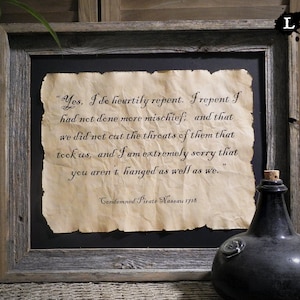 "Yes, I do heartily repent. I repent I
had not done more mischief; and that
we did not cut the throats of them that
took us, and I am extremely sorry that
you aren't hanged as well as we."
Condemned Pirate Nassau 1718
L